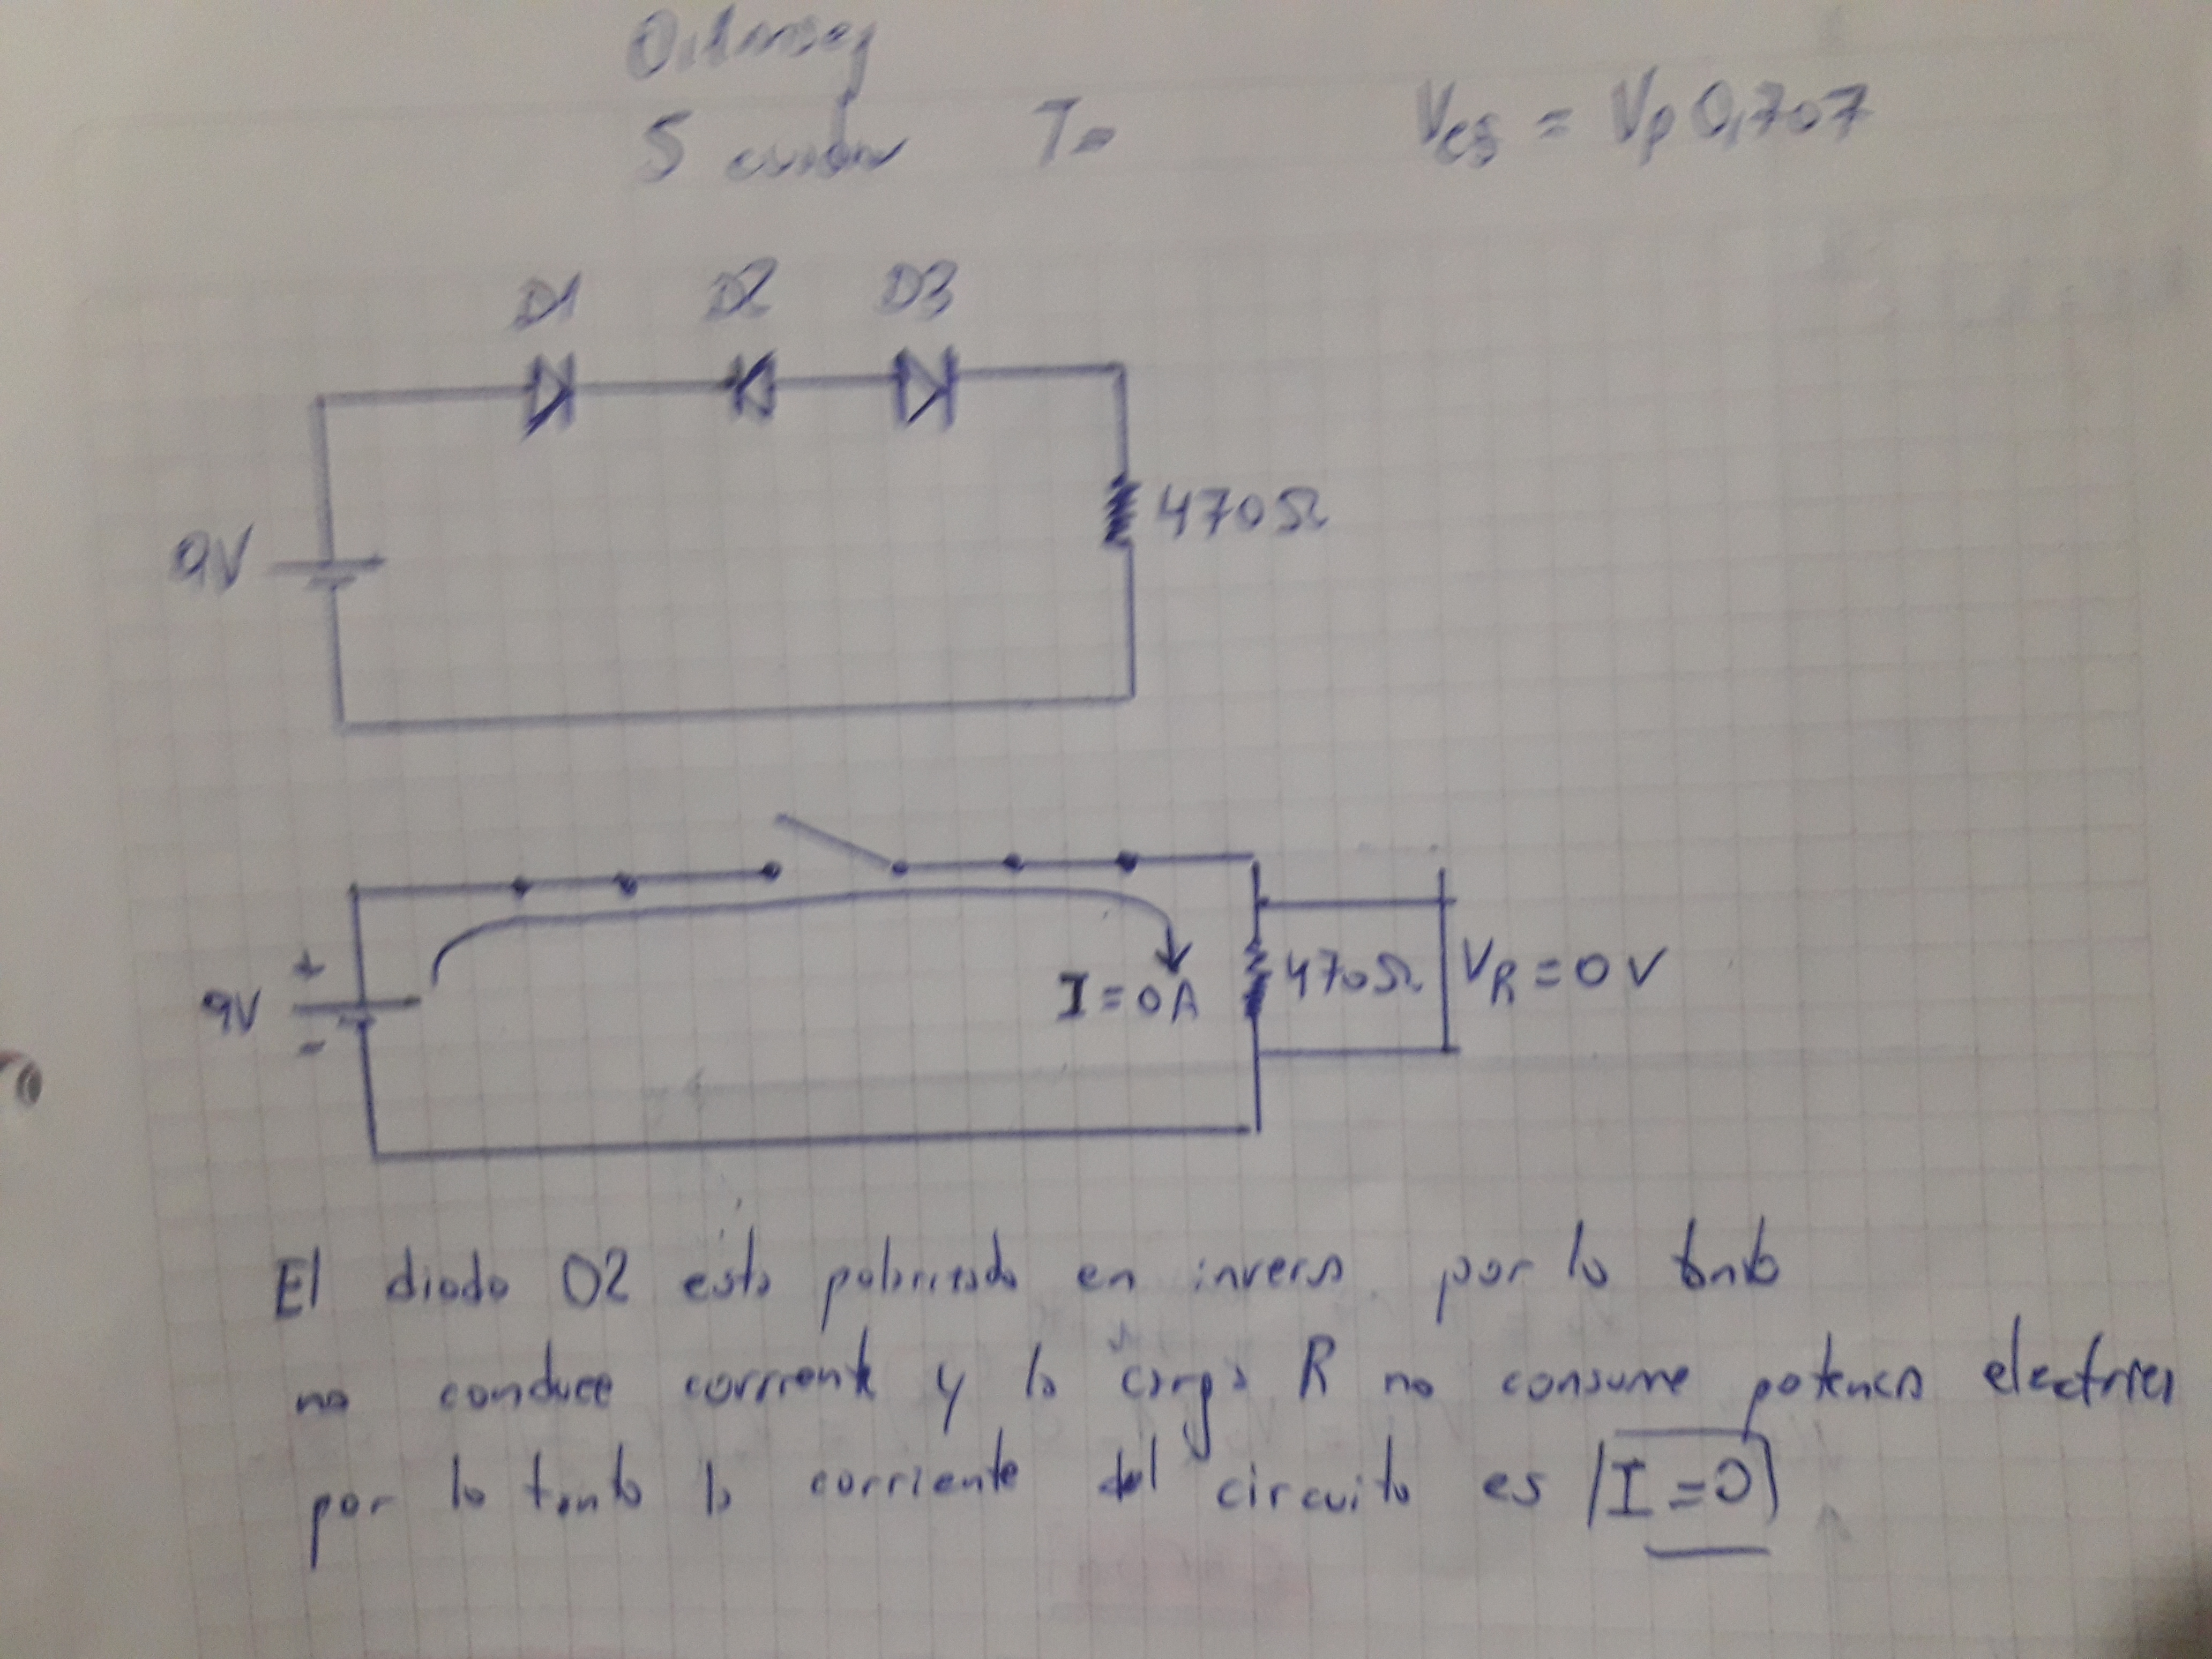 5 T=
Vef = Vp 0,707
D1 D2 D3
9V
470Ω
+
9V
-
I = 0A
470Ω
VR = 0V
El diodo D2 esta polarizado en inversa por lo tanto
no conduce corriente y la carga R no consume potencia electrica
por lo tanto la corriente del circuito es I = 0